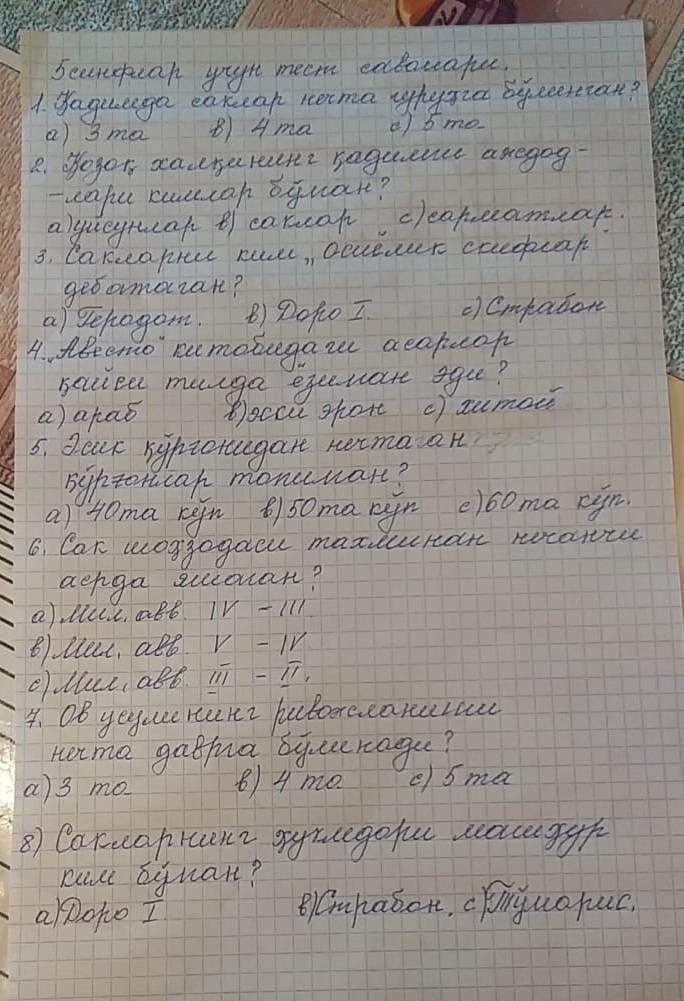 5 синфлар учун тест саволлари.
1. Қадимда саклар нечта гуруҳга бўлинган?
а) 3 та в) 4 та с) 5 та
2. Қозоқ халқининг қадимги аждод-
-лари кимлар бўлган?
а) уйсунлар в) саклар с) сарматлар.
3. Сакларни ким „Осиёлик скифлар"
деб атаган?
а) Геродот. в) Доро I. с) Страбон
4. „Авесто" китобидаги асарлар
қайси тилда ёзилган эди?
а) араб в) эски эрон с) хитой
5. Эсик қўрғонидан нечтаган
қўрғонлар топилган?
а) 40 та кўп в) 50 та кўп с) 60 та кўп.
6. Сак шоҳзодаси тахминан нечанчи
асрда яшаган?
а) Мил. авв. IV - III
в) Мил. авв. V - IV
с) Мил. авв. III - II.
7. Ов усулининг ривожланиши
нечта даврга бўлинади?
а) 3 та в) 4 та с) 5 та
8) Сакларнинг ҳукмдори машҳур
ким бўлган?
а) Доро I в) Страбон. с) Тўмарис.